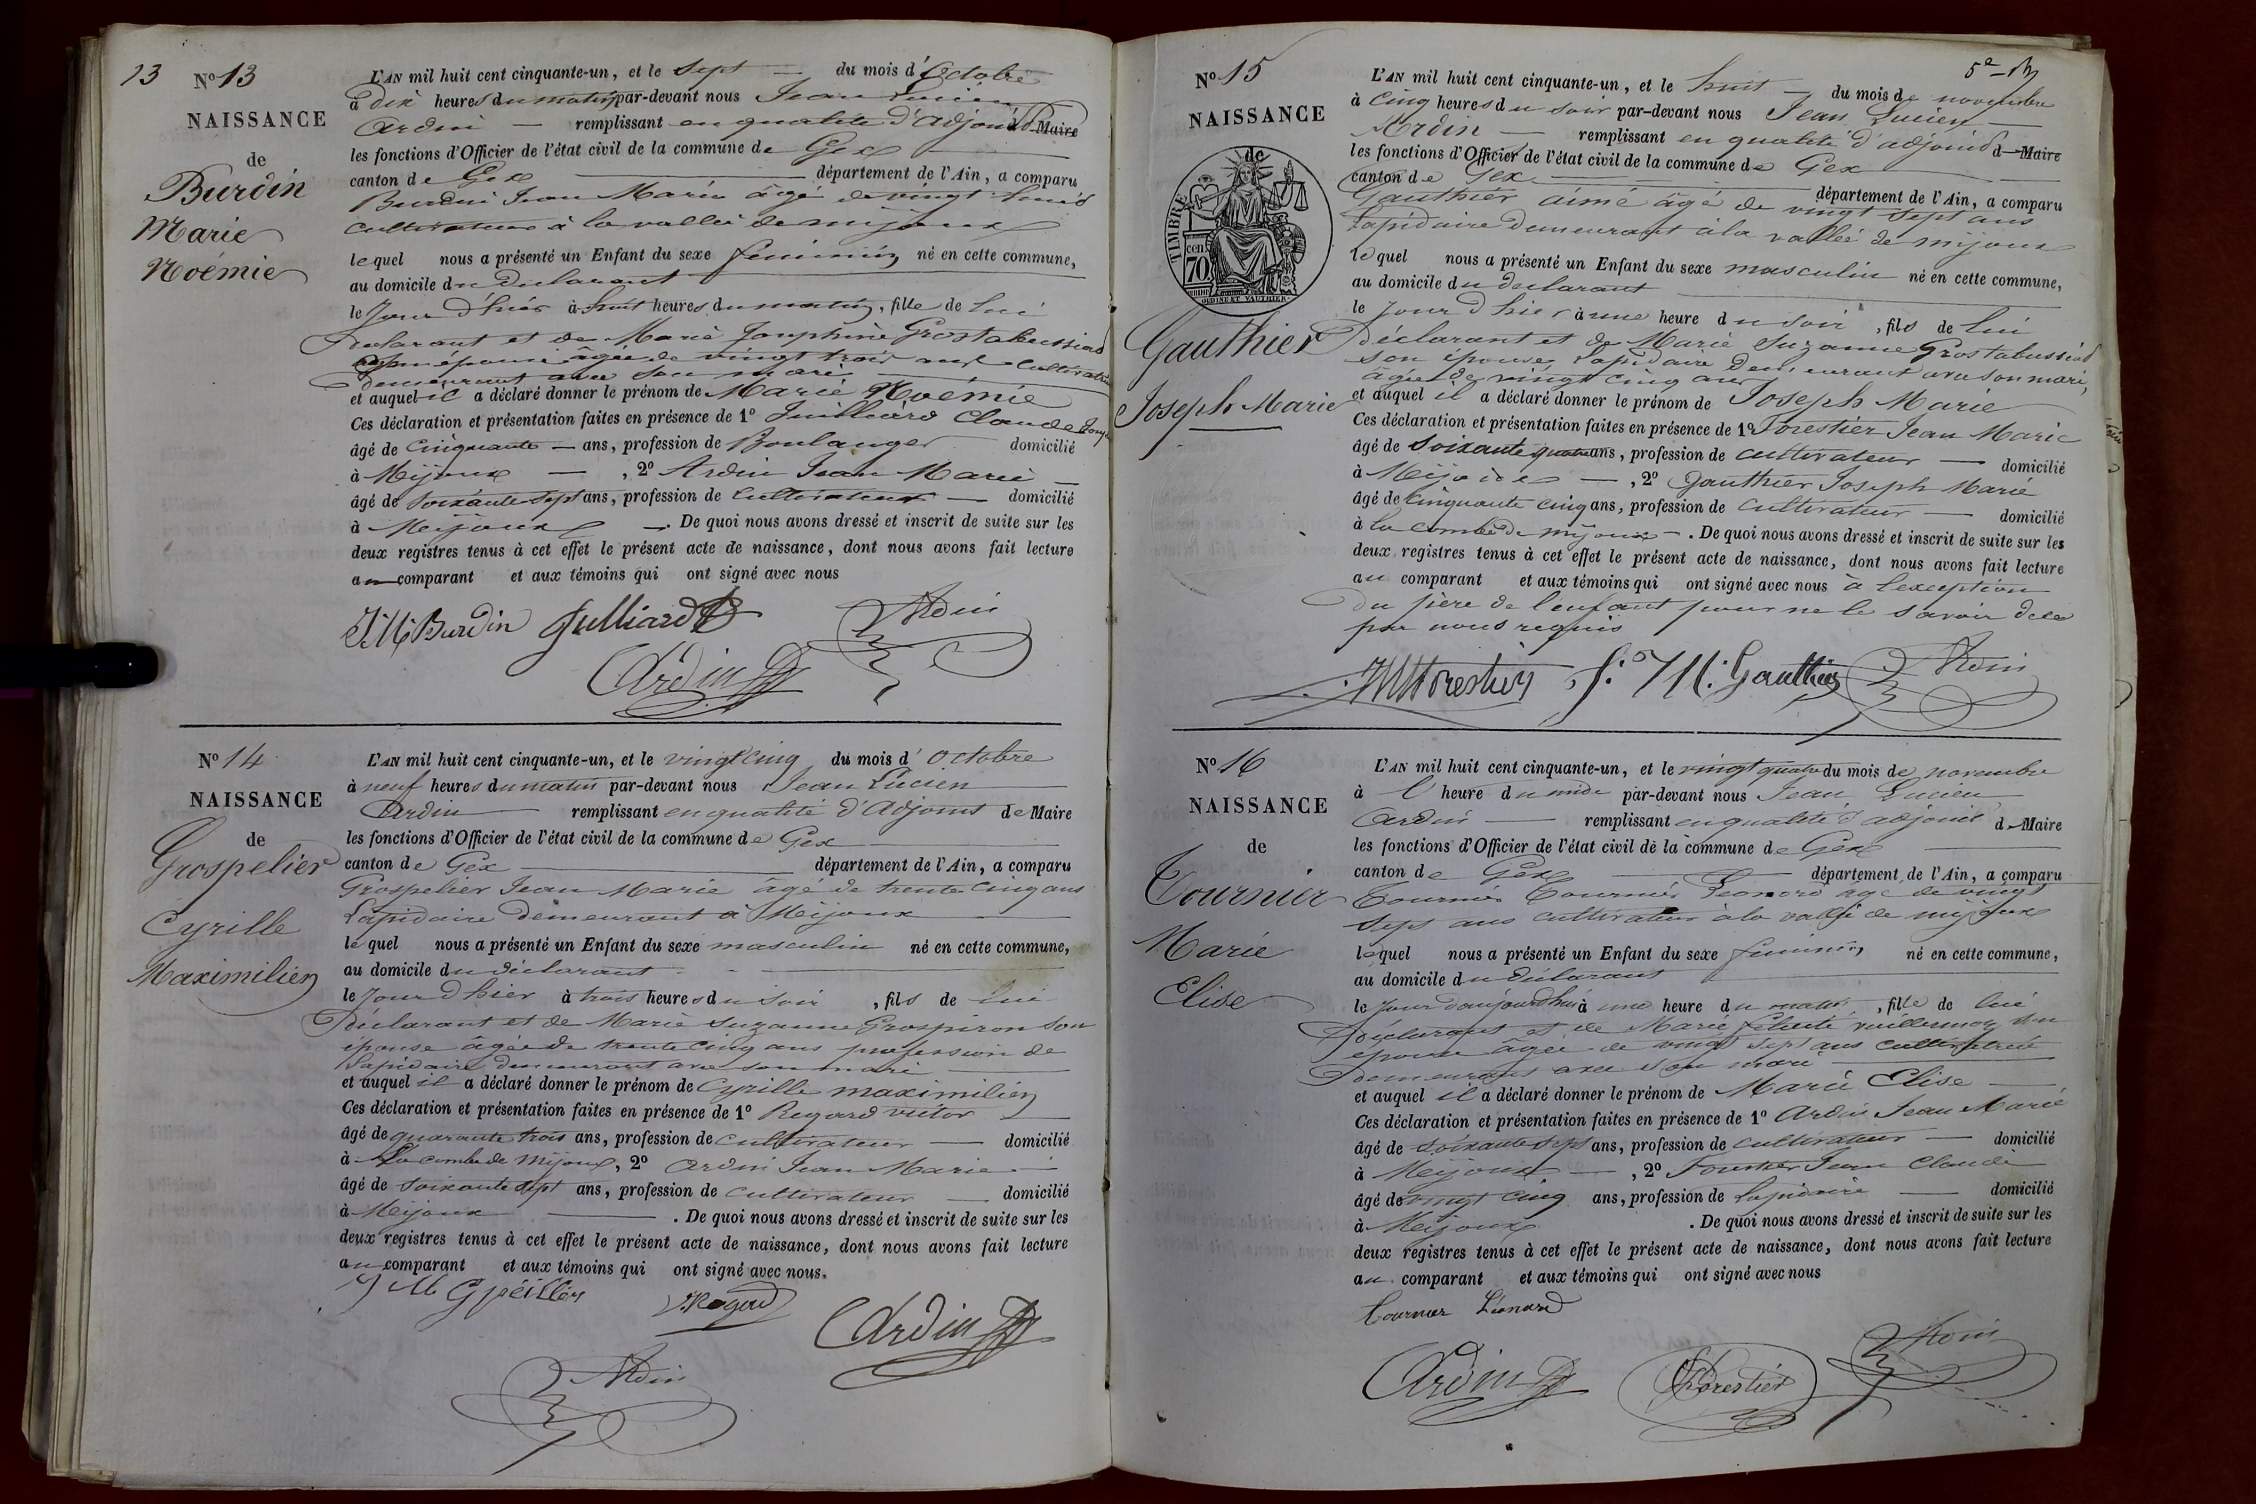 13
N° 13
NAISSANCE
de
Burdin
Marie
Noémie
L'AN mil huit cent cinquante-un, et le sept du mois d'Octobre
à dix heures du matin par-devant nous Jean Lucien
Ardin remplissant en qualité d'adjoint d Maire
les fonctions d'Officier de l'état civil de la commune de Gex
canton de Gex département de l'Ain, a comparu
Burdin Jean Marie âgé de vingt huit
cultivateur à la vallée de mijoux
lequel nous a présenté un Enfant du sexe féminin né en cette commune,
au domicile du déclarant
le Jour d'hier à huit heures du matin, fille de lui
Déclarant et de Marie Josephine Grostabussiat
son épouse âgée de vingt trois ans cultivatrice
demeurant avec son mari
et auquel il a déclaré donner le prénom de Marie Noémie
Ces déclaration et présentation faites en présence de 1° Juilliard Claude
âgé de cinquante ans, profession de Boulanger domicilié
à Mijoux , 2° Ardin Jean Marie
âgé de soixante sept ans, profession de cultivateur domicilié
à Meijoux . De quoi nous avons dressé et inscrit de suite sur les
deux registres tenus à cet effet le présent acte de naissance, dont nous avons fait lecture
au comparant et aux témoins qui ont signé avec nous
J. M. Burdin Julliard Ardin
Ardin
N° 14
NAISSANCE
de
Grospelier
Cyrille
Maximilien
L'AN mil huit cent cinquante-un, et le vingt cinq du mois d'octobre
à neuf heures du matin par-devant nous Jean Lucien
Ardin remplissant en qualité d'Adjoint de Maire
les fonctions d'Officier de l'état civil de la commune de Gex
canton de Gex département de l'Ain, a comparu
Grospelier Jean Marie âgé de trente cinq ans
Lapidaire demeurant à Meijoux
lequel nous a présenté un Enfant du sexe masculin né en cette commune,
au domicile du déclarant
le Jour d'hier à trois heures du soir , fils de lui
déclarant et de Marie Suzanne Grospiron son
épouse âgée de trente cinq ans profession de
Lapidaire demeurant avec son mari
et auquel il a déclaré donner le prénom de Cyrille maximilien
Ces déclaration et présentation faites en présence de 1° Regard victor
âgé de quarante trois ans, profession de cultivateur domicilié
à La combe de Mijoux, 2° Ardin Jean Marie
âgé de soixante sept ans, profession de cultivateur domicilié
à Meijoux . De quoi nous avons dressé et inscrit de suite sur les
deux registres tenus à cet effet le présent acte de naissance, dont nous avons fait lecture
au comparant et aux témoins qui ont signé avec nous.
J M Gpéillier V. Regard Ardin
Ardin
5e
N° 15
NAISSANCE
de
TIMBRE
cen
70
OUDINE ET VAUTHIER
Gauthier
Joseph Marie
L'AN mil huit cent cinquante-un, et le huit du mois de novembre
à cinq heures du soir par-devant nous Jean Lucien
Ardin remplissant en qualité d'adjoint d Maire
les fonctions d'Officier de l'état civil de la commune de Gex
canton de Gex département de l'Ain, a comparu
Gauthier aimé âgé de vingt sept ans
Lapidaire demeurant à la vallée de mijoux
lequel nous a présenté un Enfant du sexe masculin né en cette commune,
au domicile du déclarant
le Jour d'hier à une heure du soir , fils de lui
déclarant et de Marie Suzanne Grostabussiat
son épouse, Lapidaire demeurant avec son mari,
âgée de vingt cinq ans
et auquel il a déclaré donner le prénom de Joseph Marie
Ces déclaration et présentation faites en présence de 1° Forestier Jean Marie
âgé de soixante quatre ans, profession de cultivateur domicilié
à Mejoux , 2° Gauthier Joseph Marie
âgé de cinquante cinq ans, profession de cultivateur domicilié
à la combe de mijoux . De quoi nous avons dressé et inscrit de suite sur les
deux registres tenus à cet effet le présent acte de naissance, dont nous avons fait lecture
au comparant et aux témoins qui ont signé avec nous à l'exception
du père de l'enfant pour ne le savoir de ce
par nous requis
J M Forestier J. M. Gauthier Ardin
N° 16
NAISSANCE
de
Tournier
Marie
Elise
L'AN mil huit cent cinquante-un, et le vingt quatre du mois de novembre
à l' heure du midi par-devant nous Jean Lucien
Ardin remplissant en qualité d'adjoint d Maire
les fonctions d'Officier de l'état civil de la commune de Gex
canton de Gex département de l'Ain, a comparu
Tournier Tournier Léonard âgé de vingt
sept ans cultivateur à la vallée de mijoux
lequel nous a présenté un Enfant du sexe féminin, né en cette commune,
au domicile du déclarant
le Jour d'aujourd'hui à une heure du matin, fille de lui
Déclarant et de Marie félicité vuillermoz son
épouse âgée de vingt sept ans cultivatrice
demeurant avec son mari
et auquel il a déclaré donner le prénom de Marie Elise
Ces déclaration et présentation faites en présence de 1° Ardin Jean Marie
âgé de soixante sept ans, profession de cultivateur domicilié
à Meijoux , 2° Forestier Jean Claude
âgé de vingt cinq ans, profession de Lapidaire domicilié
à Meijoux . De quoi nous avons dressé et inscrit de suite sur les
deux registres tenus à cet effet le présent acte de naissance, dont nous avons fait lecture
au comparant et aux témoins qui ont signé avec nous
Tournier Léonard
Ardin Forestier Ardin